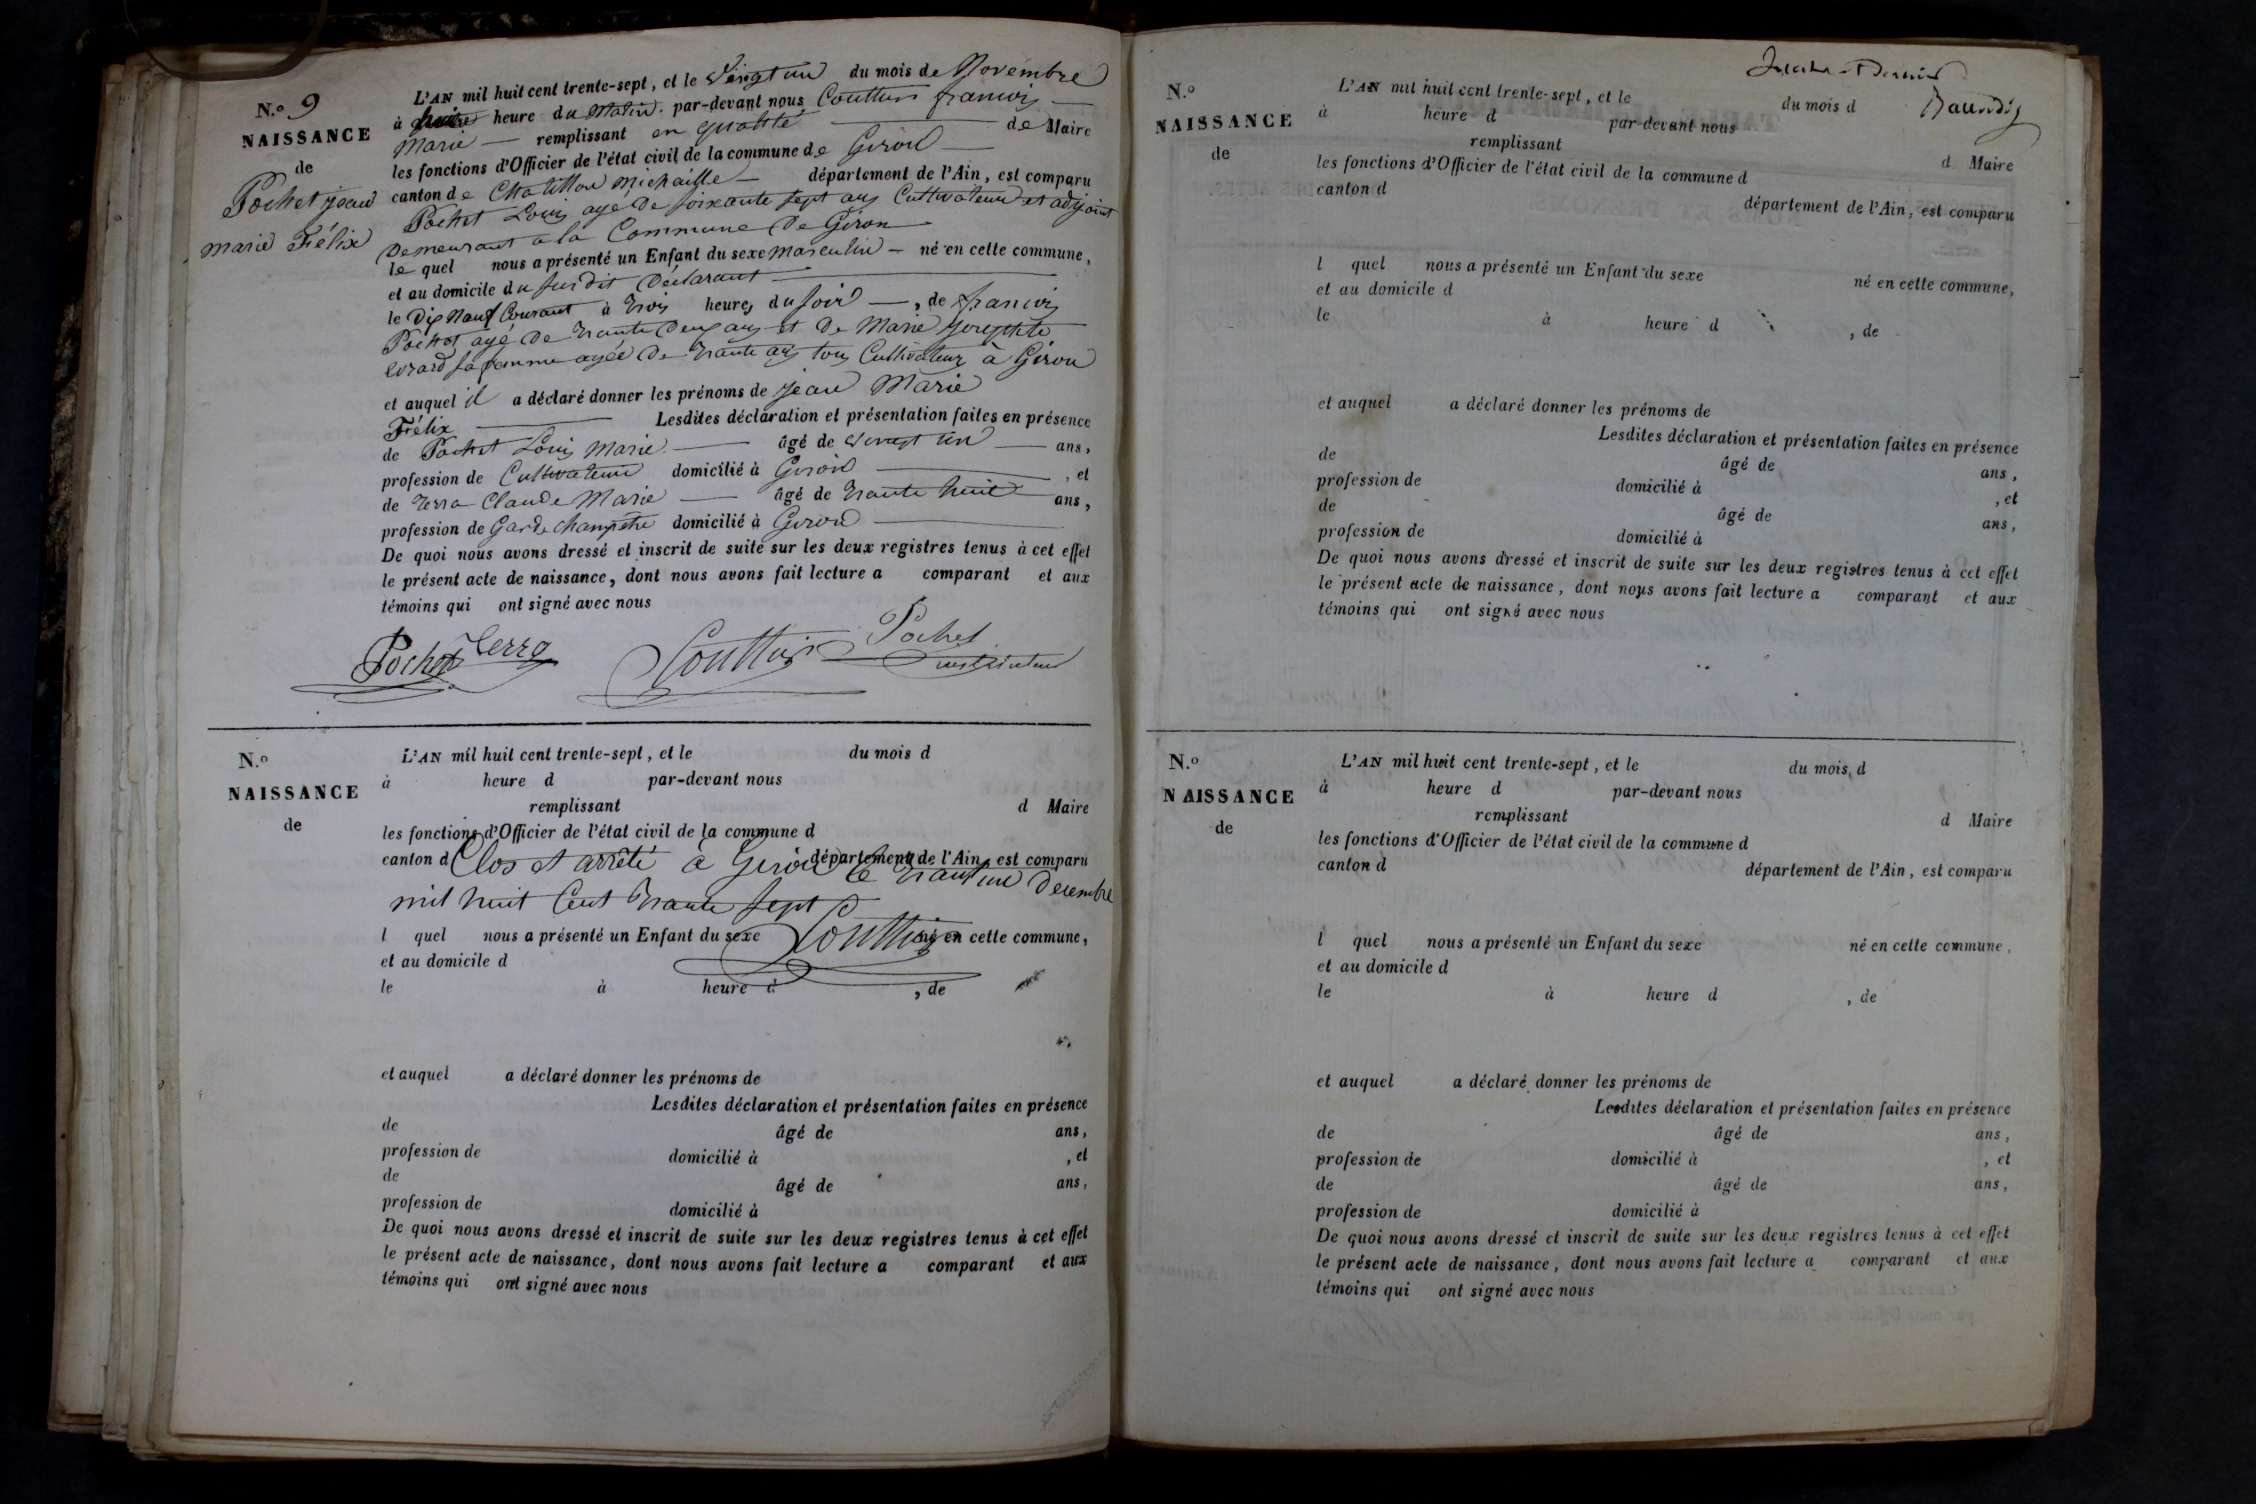 N.º 9
NAISSANCE
de
Pochet jean
marie Félix
L'AN mil huit cent trente-sept, et le vingt un du mois de Novembre
à heure du Matin par-devant nous Couttier francois
Marie remplissant en qualité de Maire
les fonctions d'Officier de l'état civil de la commune de Giron
canton de Chatillon Michaille département de l'Ain, est comparu
Pochet Louis agé de soixante sept ans Cultivateur et adjoint
Demeurant a la Commune de Giron
le quel nous a présenté un Enfant du sexe masculin né en cette commune,
et au domicile du susdit Déclarant
le Dix Neuf Courant à trois heures du soir, de francois
Pochet agé de trante deux ans et de Marie josephte
evrard sa famme agée de trante ans tous Cultivateur à Giron
et auquel il a déclaré donner les prénoms de jean Marie
Félix Lesdites déclaration et présentation faites en présence
de Pochet Louis Marie âgé de vingt un ans,
profession de Cultivateur domicilié à Giron, et
de Terra Claude Marie âgé de trante huit ans,
profession de Garde champêtre domicilié à Giron
De quoi nous avons dressé et inscrit de suite sur les deux registres tenus à cet effet
le présent acte de naissance, dont nous avons fait lecture a comparant et aux
témoins qui ont signé avec nous
Pochet Terra Couttier Pochet
instituteur
N.º
NAISSANCE
de
L'AN mil huit cent trente-sept, et le du mois d
à heure d par-devant nous
remplissant d Maire
les fonctions d'Officier de l'état civil de la commune d
canton d département de l'Ain, est comparu
Clos et arrêté à Giron le trant un Décembre
mil huit Cent trante sept
Couttier
l quel nous a présenté un Enfant du sexe né en cette commune,
et au domicile d
le à heure d , de
et auquel a déclaré donner les prénoms de
Lesdites déclaration et présentation faites en présence
de âgé de ans,
profession de domicilié à , et
de âgé de ans,
profession de domicilié à
De quoi nous avons dressé et inscrit de suite sur les deux registres tenus à cet effet
le présent acte de naissance, dont nous avons fait lecture a comparant et aux
témoins qui ont signé avec nous
N.º
NAISSANCE
de
L'AN mil huit cent trente-sept, et le du mois d
à heure d par-devant nous
remplissant d Maire
les fonctions d'Officier de l'état civil de la commune d
canton d département de l'Ain, est comparu
l quel nous a présenté un Enfant du sexe né en cette commune,
et au domicile d
le à heure d , de
et auquel a déclaré donner les prénoms de
Lesdites déclaration et présentation faites en présence
de âgé de ans,
profession de domicilié à , et
de âgé de ans,
profession de domicilié à
De quoi nous avons dressé et inscrit de suite sur les deux registres tenus à cet effet
le présent acte de naissance, dont nous avons fait lecture a comparant et aux
témoins qui ont signé avec nous
N.º
NAISSANCE
de
L'AN mil huit cent trente-sept, et le du mois d
à heure d par-devant nous
remplissant d Maire
les fonctions d'Officier de l'état civil de la commune d
canton d département de l'Ain, est comparu
l quel nous a présenté un Enfant du sexe né en cette commune,
et au domicile d
le à heure d , de
et auquel a déclaré donner les prénoms de
Lesdites déclaration et présentation faites en présence
de âgé de ans,
profession de domicilié à , et
de âgé de ans,
profession de domicilié à
De quoi nous avons dressé et inscrit de suite sur les deux registres tenus à cet effet
le présent acte de naissance, dont nous avons fait lecture a comparant et aux
témoins qui ont signé avec nous